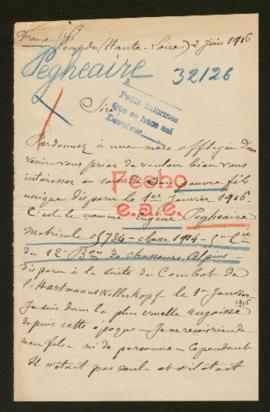 France
Lempdes (Haute-Loire) 2 Juin 1916
Pegheaire
32126
Pedir informes
que se hace así
Devolver
Sire
Pardonnez à une mère affligée d'oser
venir vous prier de vouloir bien vous
intéresser au sort de son pauvre fils
unique disparu le 1er Janvier 1916.
C'est le nommé Eugène Pegheaire
Matricule 05784 - classe 1914 - 1e Cie
du 12e Bon de chasseurs Alpins
Fecho
e.a.c.
disparu à la suite du Combat de
l'Hartmannswillerkopf le 1er Janvier
1916
Je suis dans la plus cruelle angoisse
depuis cette époque - Je ne reçois rien de
mon fils - ni de personne - Cependant
Il n'était pas seul et s'il était